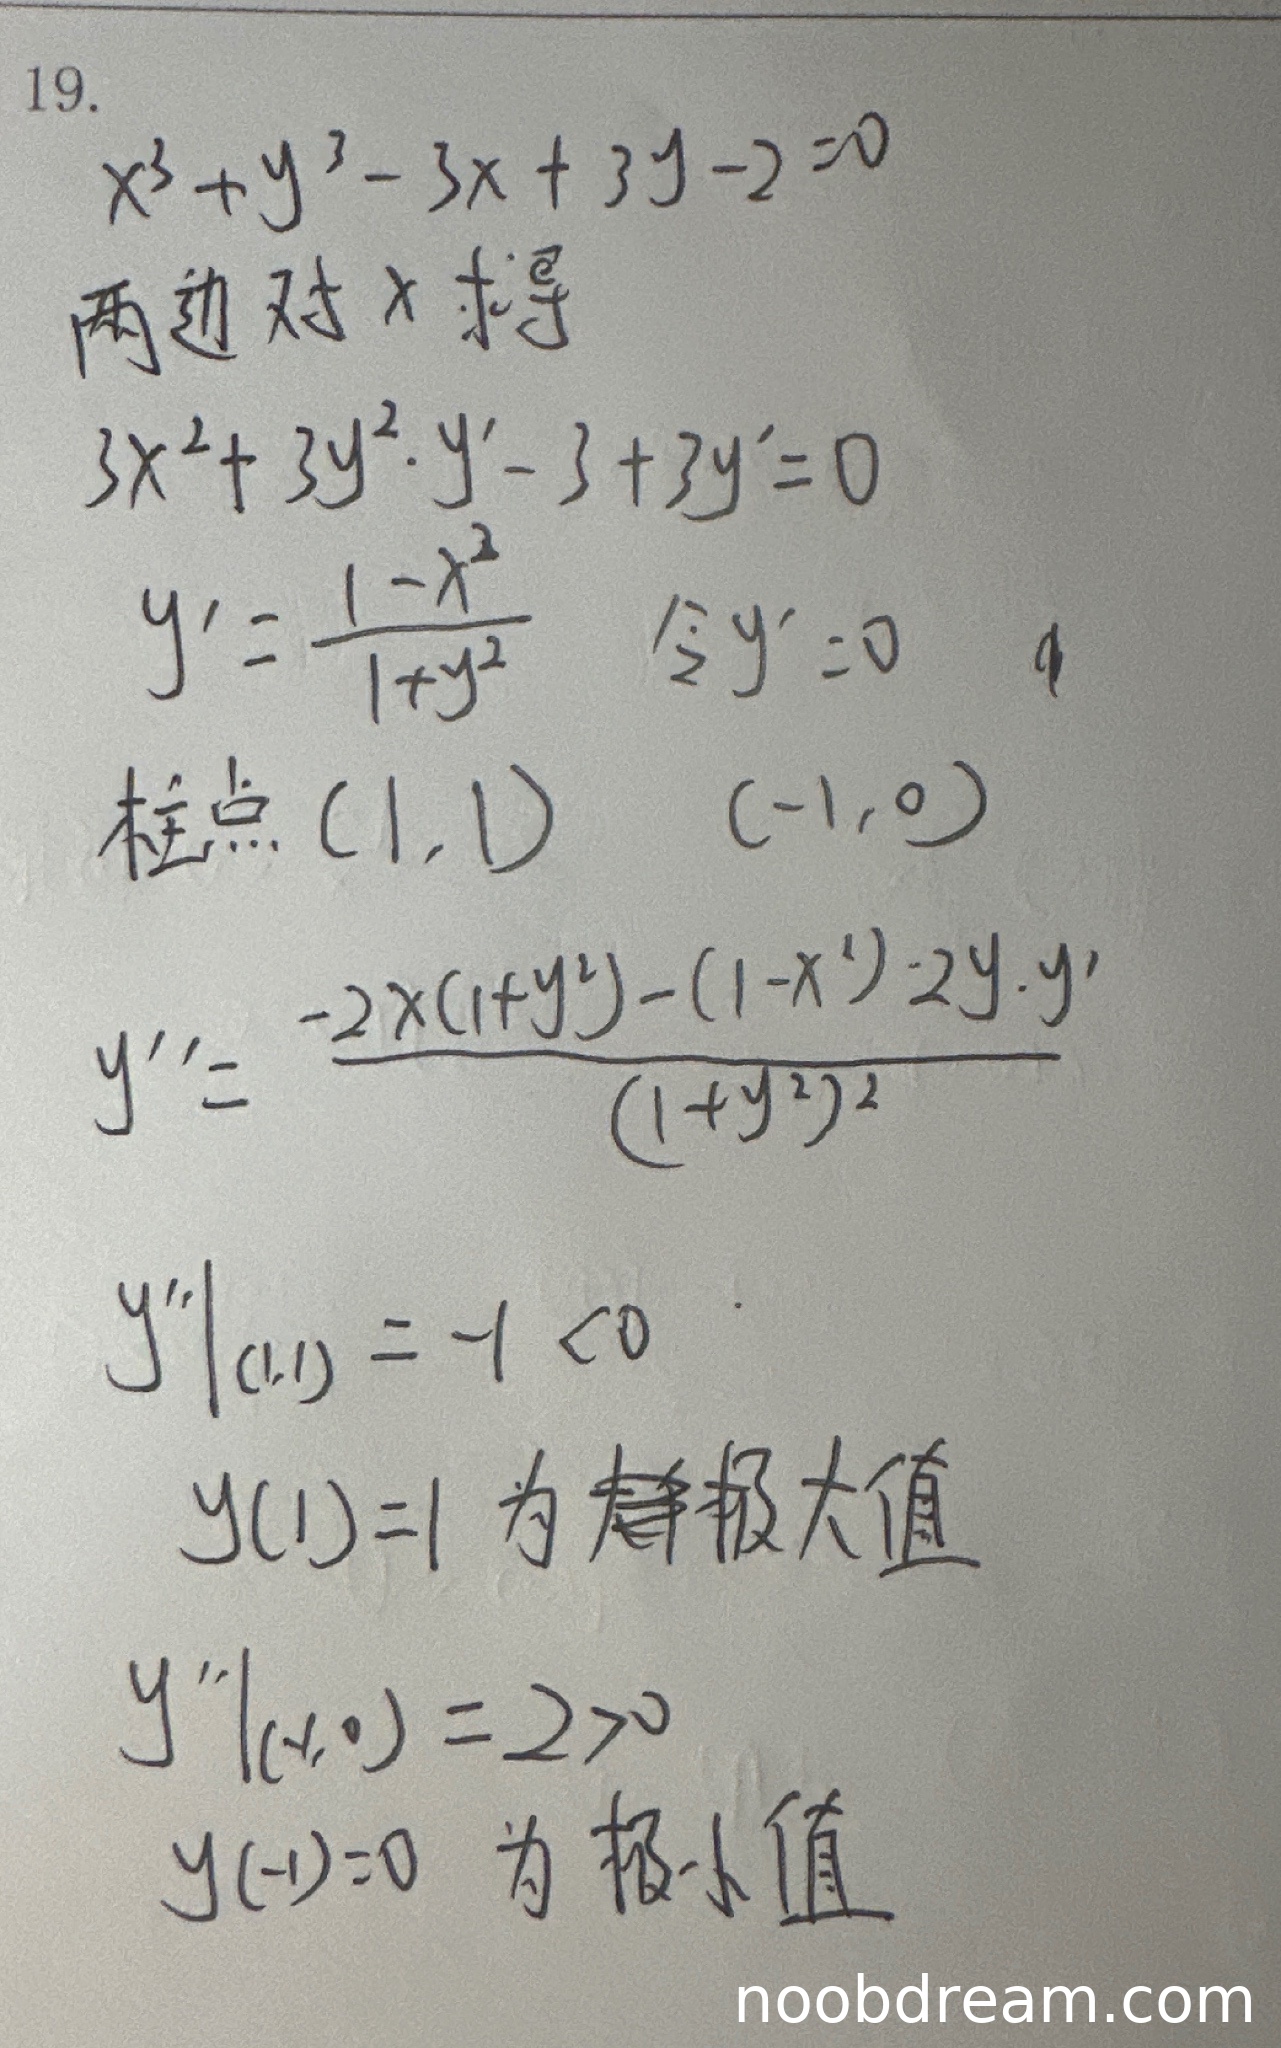 19.
x³+y³-3x+3y-2=0
两边对x求导
3x²+3y²·y'-3+3y'=0
y'=(1-x²)/(1+y²) 令y'=0
柱点(1,1) (-1,0)
y''=(-2x(1+y²)-(1-x²)·2y·y')/(1+y²)²
y''|(1,1)=-1<0
y(1)=1为极大值
y''|(-1,0)=2>0
y(-1)=0为极小值
noobdream.com